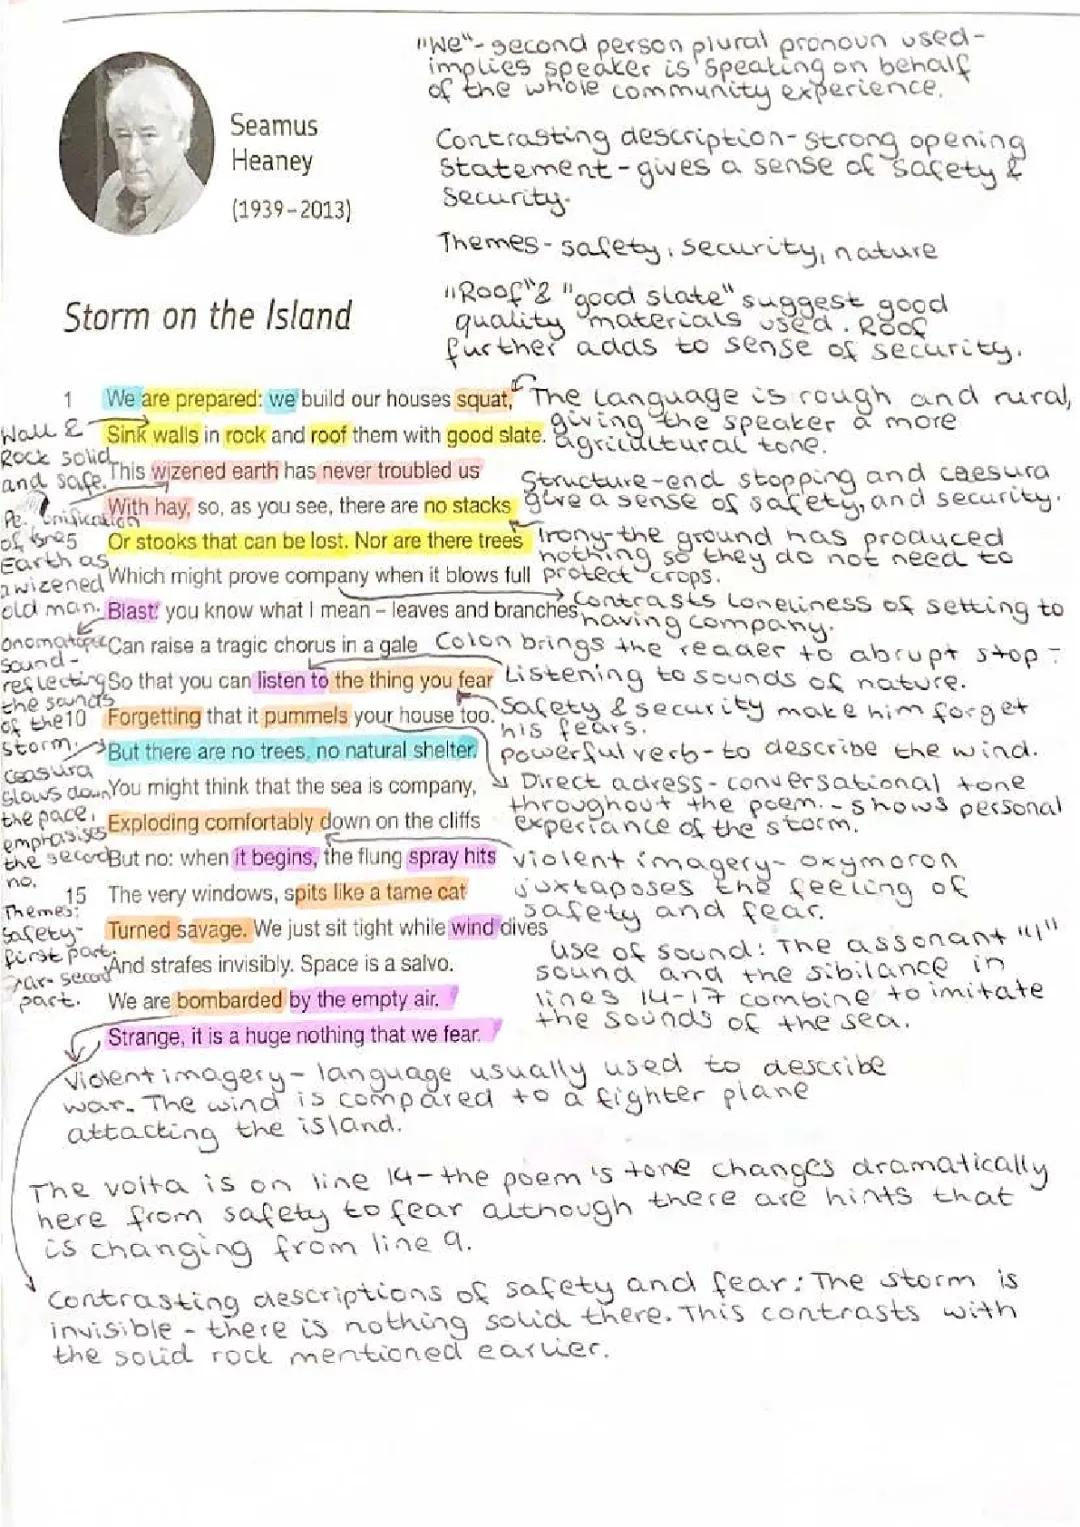 "We"- second person plural pronoun used-
implies speaker is speaking on behalf
of the whole community experience.
Seamus
Heaney
(1939-2013)
Contrasting description- strong opening
Statement - gives a sense of safety &
Security.
Themes- safety, security, nature
Storm on the Island
"Roof" & "good slate" suggest good
quality materials used. Roof
further adds to sense of security.
1 We are prepared: we build our houses squat,
Sink walls in rock and roof them with good slate.
This wizened earth has never troubled us
With hay, so, as you see, there are no stacks
5 Or stooks that can be lost. Nor are there trees
Which might prove company when it blows full
Blast: you know what I mean – leaves and branches
Can raise a tragic chorus in a gale
So that you can listen to the thing you fear
10 Forgetting that it pummels your house too.
But there are no trees, no natural shelter.
You might think that the sea is company,
Exploding comfortably down on the cliffs
But no: when it begins, the flung spray hits
15 The very windows, spits like a tame cat
Turned savage. We just sit tight while wind dives
And strafes invisibly. Space is a salvo.
We are bombarded by the empty air.
Strange, it is a huge nothing that we fear.
Wall &
Rock solid
and safe.
of
Earth as
a wizened
old man.
sound -
reflecting
the sounds
of the
storm.
Ceasura
slows down
the pace,
emphasises
the second
no.
Themes:
Safety-
first part.
part.
The language is rough and rural,
giving the speaker a more
agricultural tone.
Structure-end stopping and caesura
give a sense of safety, and security.
Irony-the ground has produced
nothing so they do not need to
protect crops.
Contrasts loneliness of setting to
having company.
Colon brings the reader to abrupt stop -
Listening to sounds of nature.
Safety & security make him forget
his fears.
powerful verb- to describe the wind.
Direct adress- conversational tone
throughout the poem. - shows personal
experiance of the storm.
violent imagery- oxymoron
juxtaposes the feeling of
safety and fear.
Use of sound: The assonant "i"
sound and the sibilance in
lines 14-17 combine to imitate
the sounds of the sea.
Violent imagery- language usually used to describe
war. The wind is compared to a fighter plane
attacking the island.
The volta is on line 14- the poem's tone changes dramatically
here from safety to fear although there are hints that
is changing from line 9.
Contrasting descriptions of safety and fear: The storm is
invisible - there is nothing solid there. This contrasts with
the solid rock mentioned earlier.